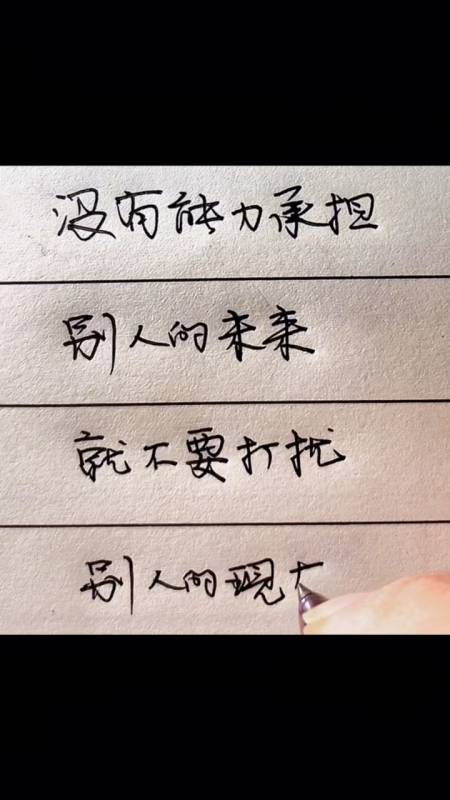 没有能力承担
别人的未来
就不要打扰
别人的现